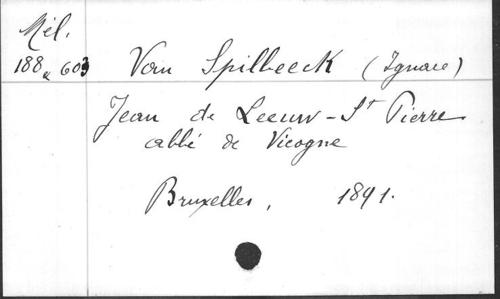 Mél.
188, 603
Van Spilbeeck (Ignace)
Jean de Leeuw-St Pierre
abbé de Vicogne
Bruxelles, 1891.